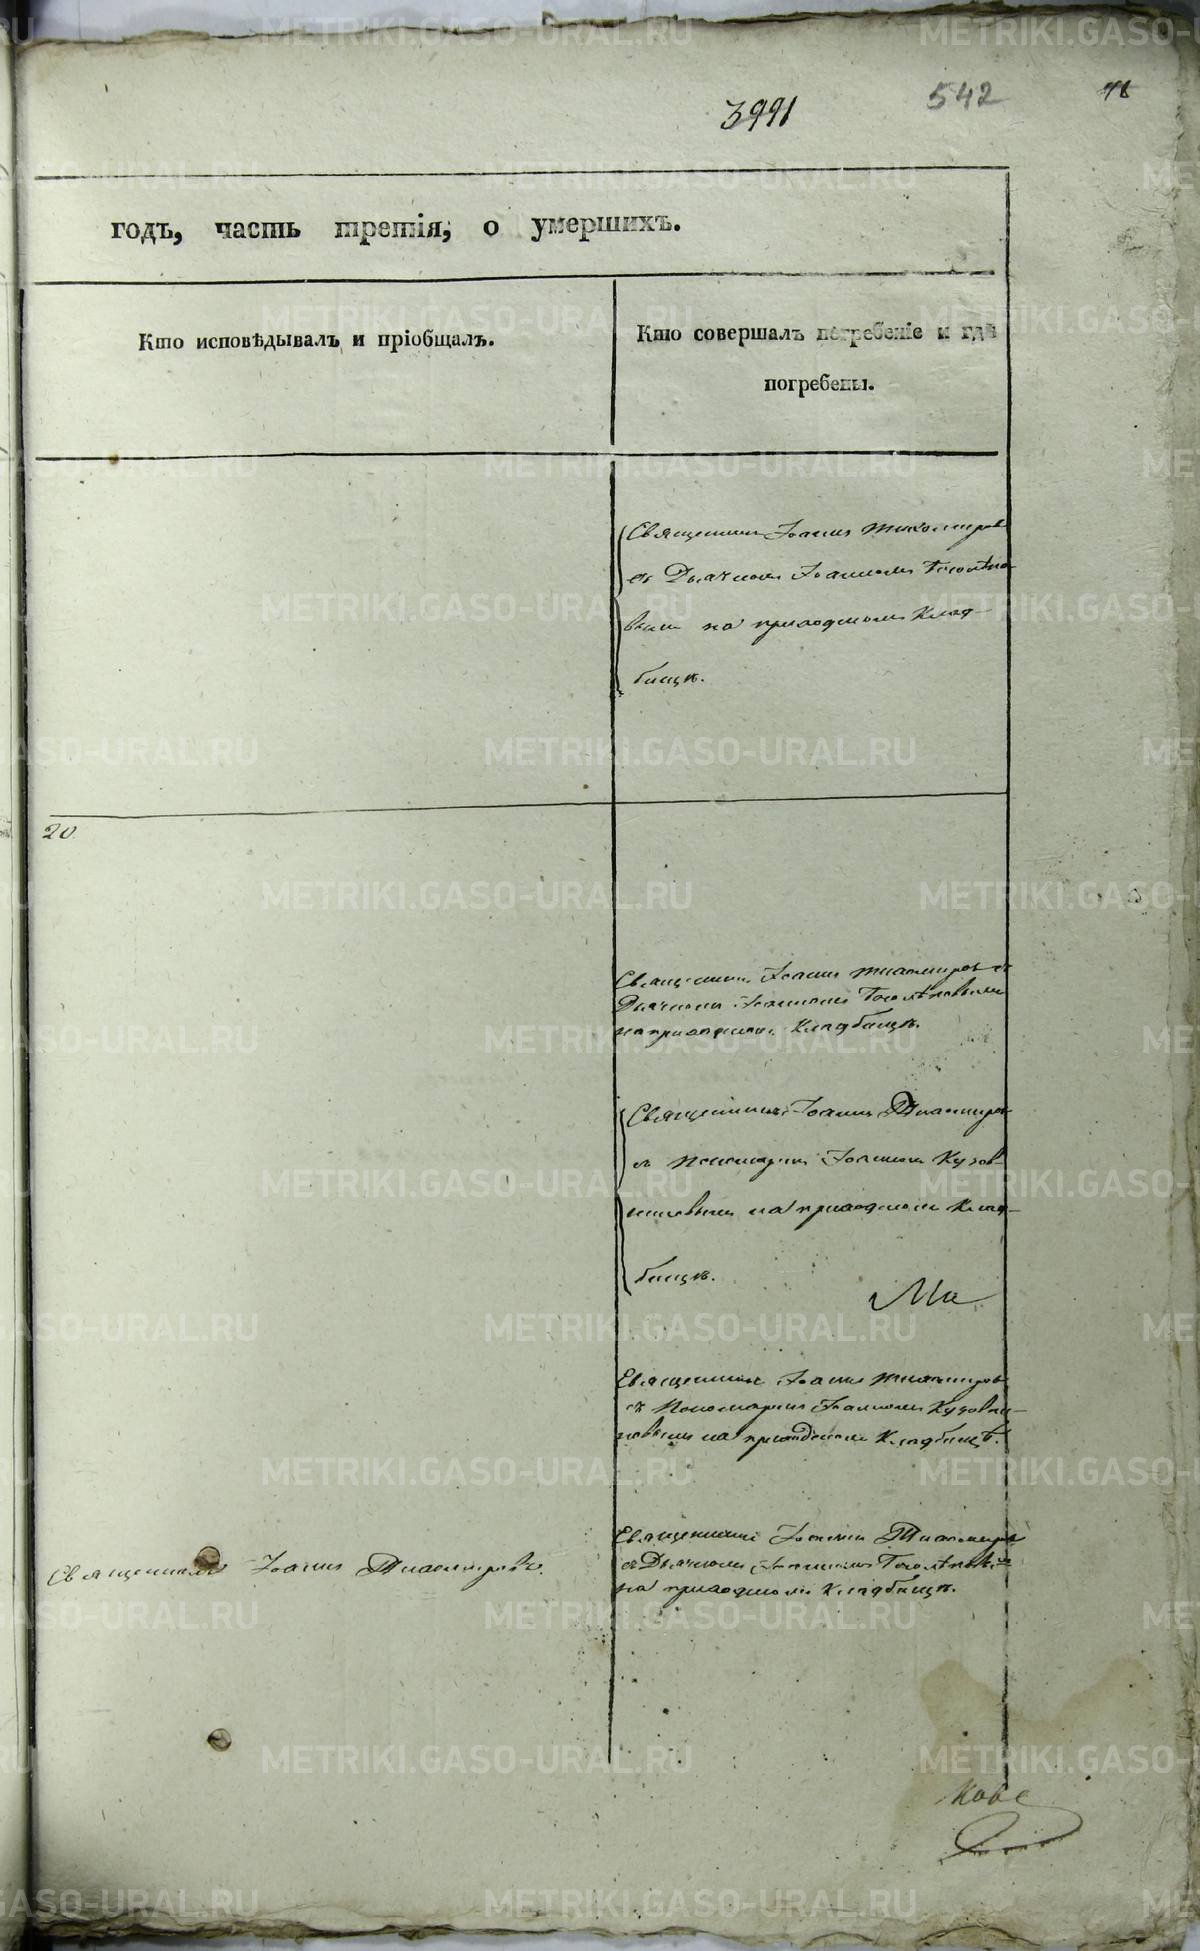 3991
542
годъ, часть третія, о умершихъ.
Кто исповѣдывалъ и пріобщалъ.
Кто совершалъ погребеніе и гдѣ
погребены.
Священникъ Іоаннъ Тихомировъ
съ Дьячкомъ Іоанномъ
вымъ на приходскомъ Клад-
бищѣ.
20.
Священникъ Іоаннъ Тихомировъ съ
Дьячкомъ Іоанномъ
на приходскомъ Кладбищѣ.
Священникъ Іоаннъ Тихомировъ
съ Пономаремъ Іоанномъ Кузов-
никовымъ на приходскомъ Клад-
бищѣ.
Священникъ Іоаннъ Тихомировъ
съ Пономаремъ Іоанномъ Кузовни-
ковымъ на приходскомъ Кладбищѣ.
Священникъ Іоаннъ Тихомировъ.
Священникъ Іоаннъ Тихомировъ
съ Дьячкомъ Іоанномъ
на приходскомъ Кладбищѣ.
METRIKI.GASO-URAL.RU